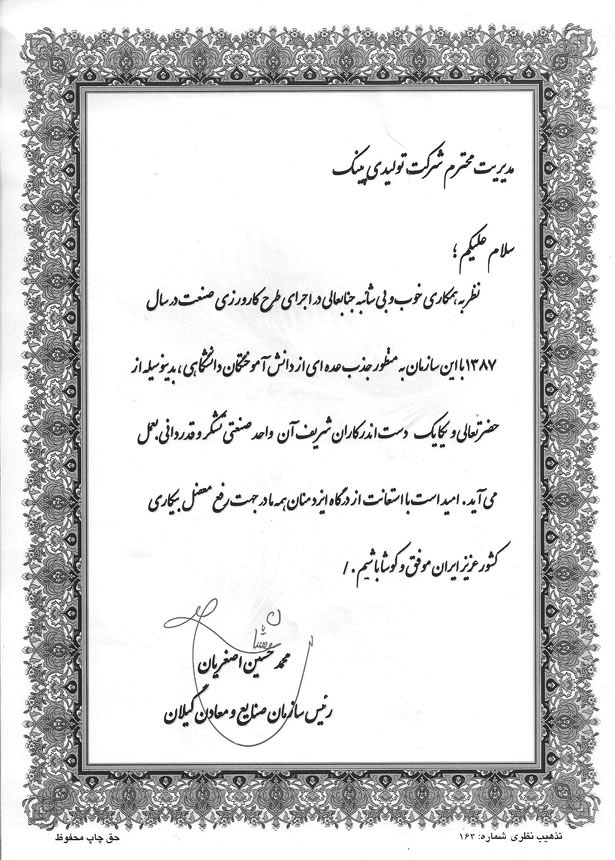 مدیریت محترم شرکت تولیدی پینک
سلام علیکم ؛
نظر به همکاری خوب و بی شائبه جنابعالی در اجرای طرح کارورزی صنعت در سال
۱۳۸۷ با این سازمان به منظور جذب عده ای از دانش آموختگان دانشگاهی ، بدینوسیله از
حضرتعالی و یکایک دست اندرکاران شریف آن واحد صنعتی تشکر و قدردانی بعمل
می آید . امید است با استعانت از درگاه ایزد منان همه ما در جهت رفع معضل بیکاری
کشور عزیز ایران موفق و کوشا باشیم . /
محمد حسین اصغریان
رئیس سازمان صنایع و معادن گیلان
تذهیب نظری شماره: ۱۶۳
حق چاپ محفوظ